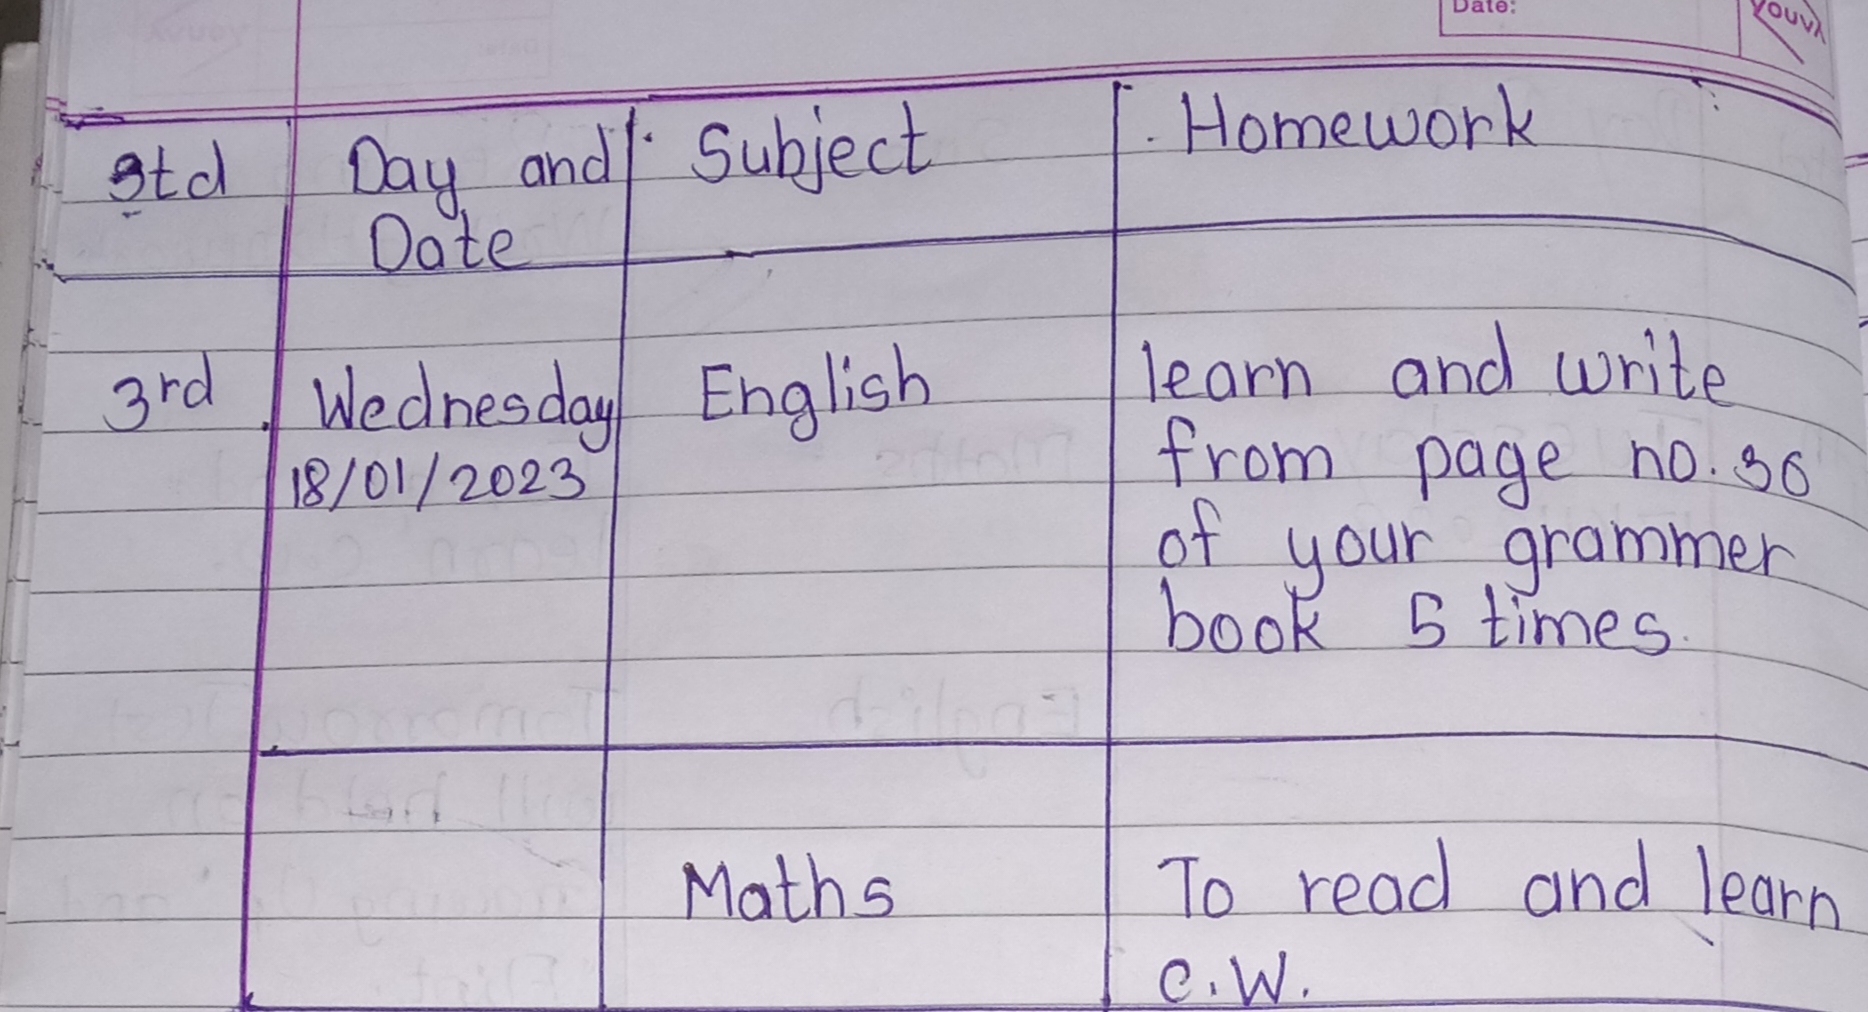 Date:
YOUVA
Std Day and Subject Homework
Date
3rd Wednesday English learn and write
18/01/2023 from page no. 36
of your grammer
book 5 times.
Maths To read and learn
C.W.